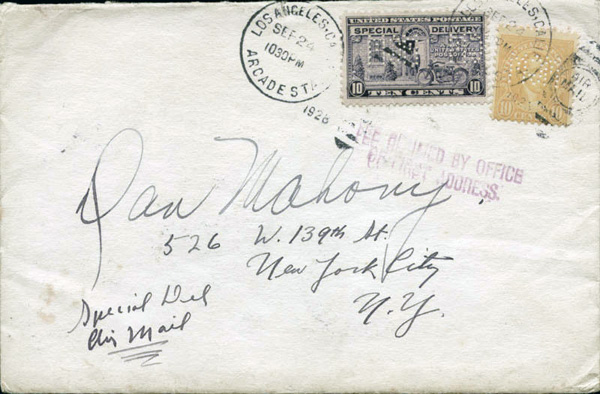 LOS ANGELES, CA
SEP 24
1030 PM
ARCADE STA.
1928
UNITED STATES POSTAGE
SPECIAL DELIVERY
10 TEN CENTS 10
10
AIR
MAIL
FEE CLAIMED BY OFFICE
OF FIRST ADDRESS.
Dan Mahony,
526 W. 139th St.
New York City
N.Y.
Special Del
Air Mail